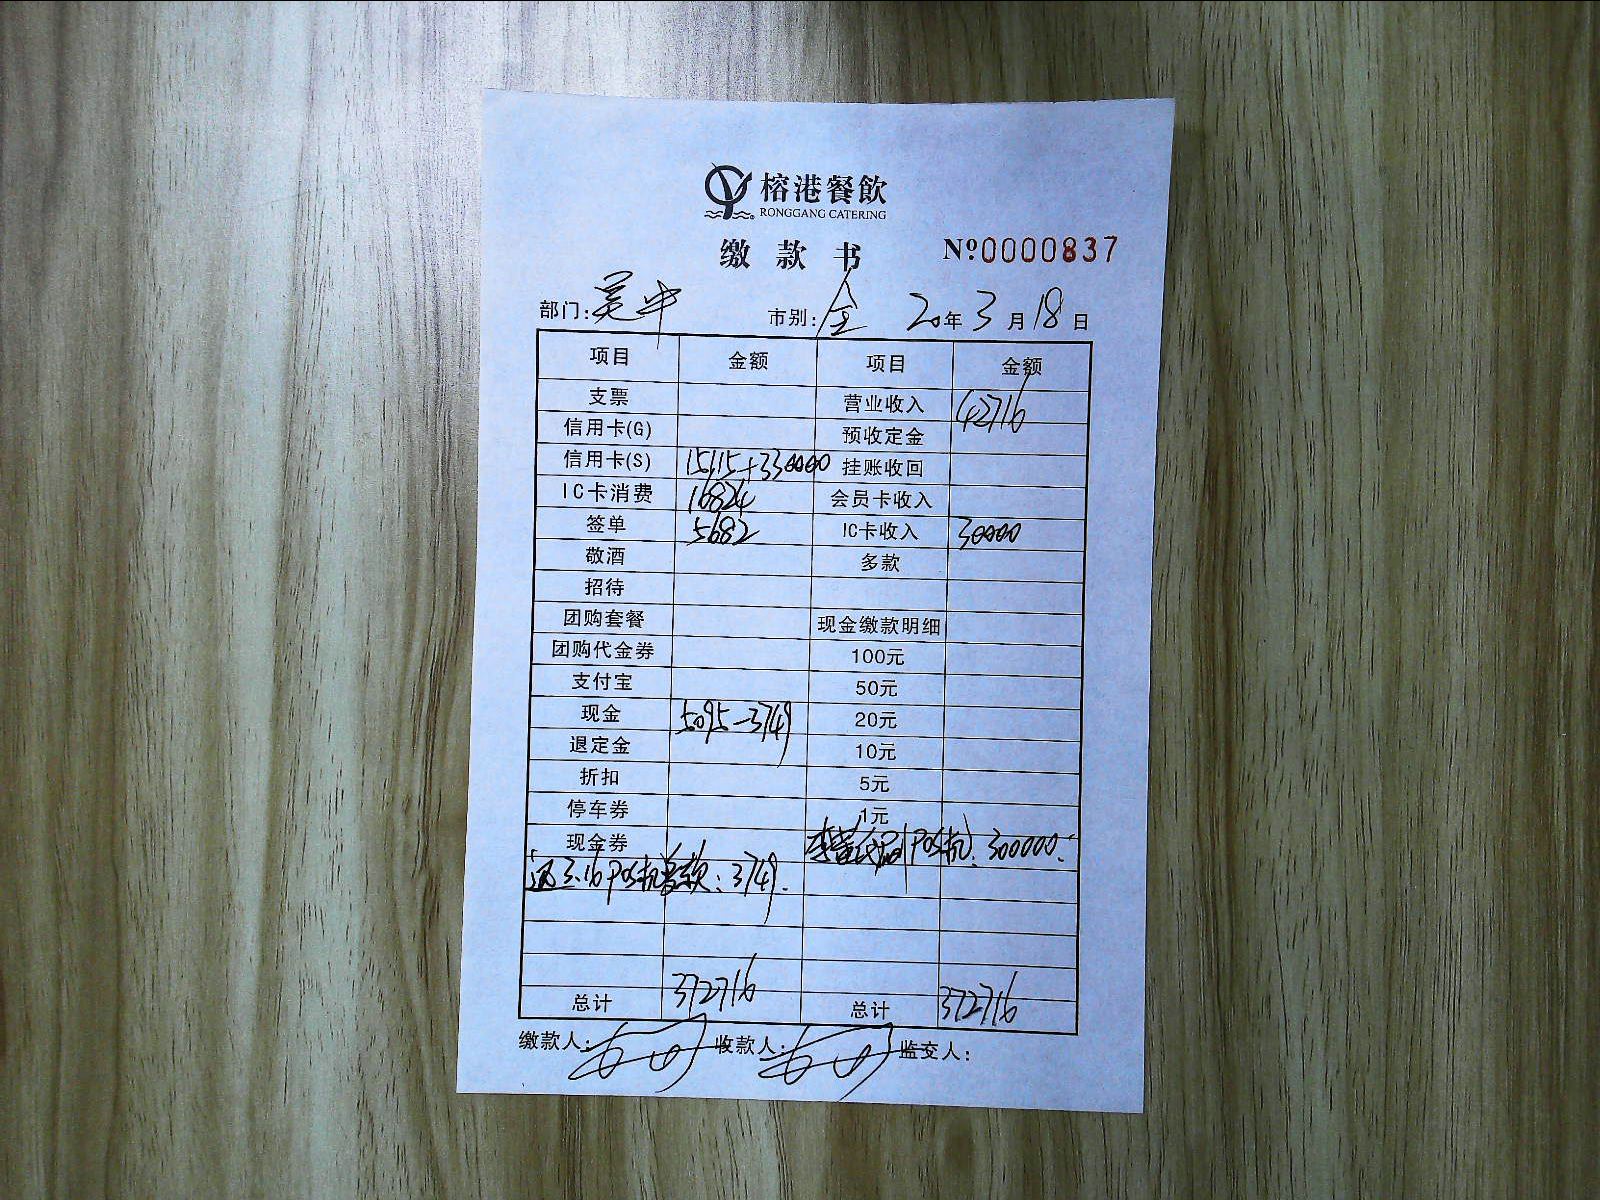 榕港餐飲
RONGGANG CATERING
缴款书 №0000837
部门:吴中 市别:全 20年3月18日
项目 金额 项目 金额
支票 营业收入 42716
信用卡(G) 预收定金
信用卡(S) 15115+330000 挂账收回
IC卡消费 16824 会员卡收入
签单 5682 IC卡收入 30000
敬酒 多款
招待
团购套餐 现金缴款明细
团购代金券 100元
支付宝 50元
现金 5095-3749 20元
退定金 10元
折扣 5元
停车券 1元
现金券 POS机:300000.
3.16 POS机 款:3749.
总计 372716 总计 372716
缴款人: 收款人: 监交人: